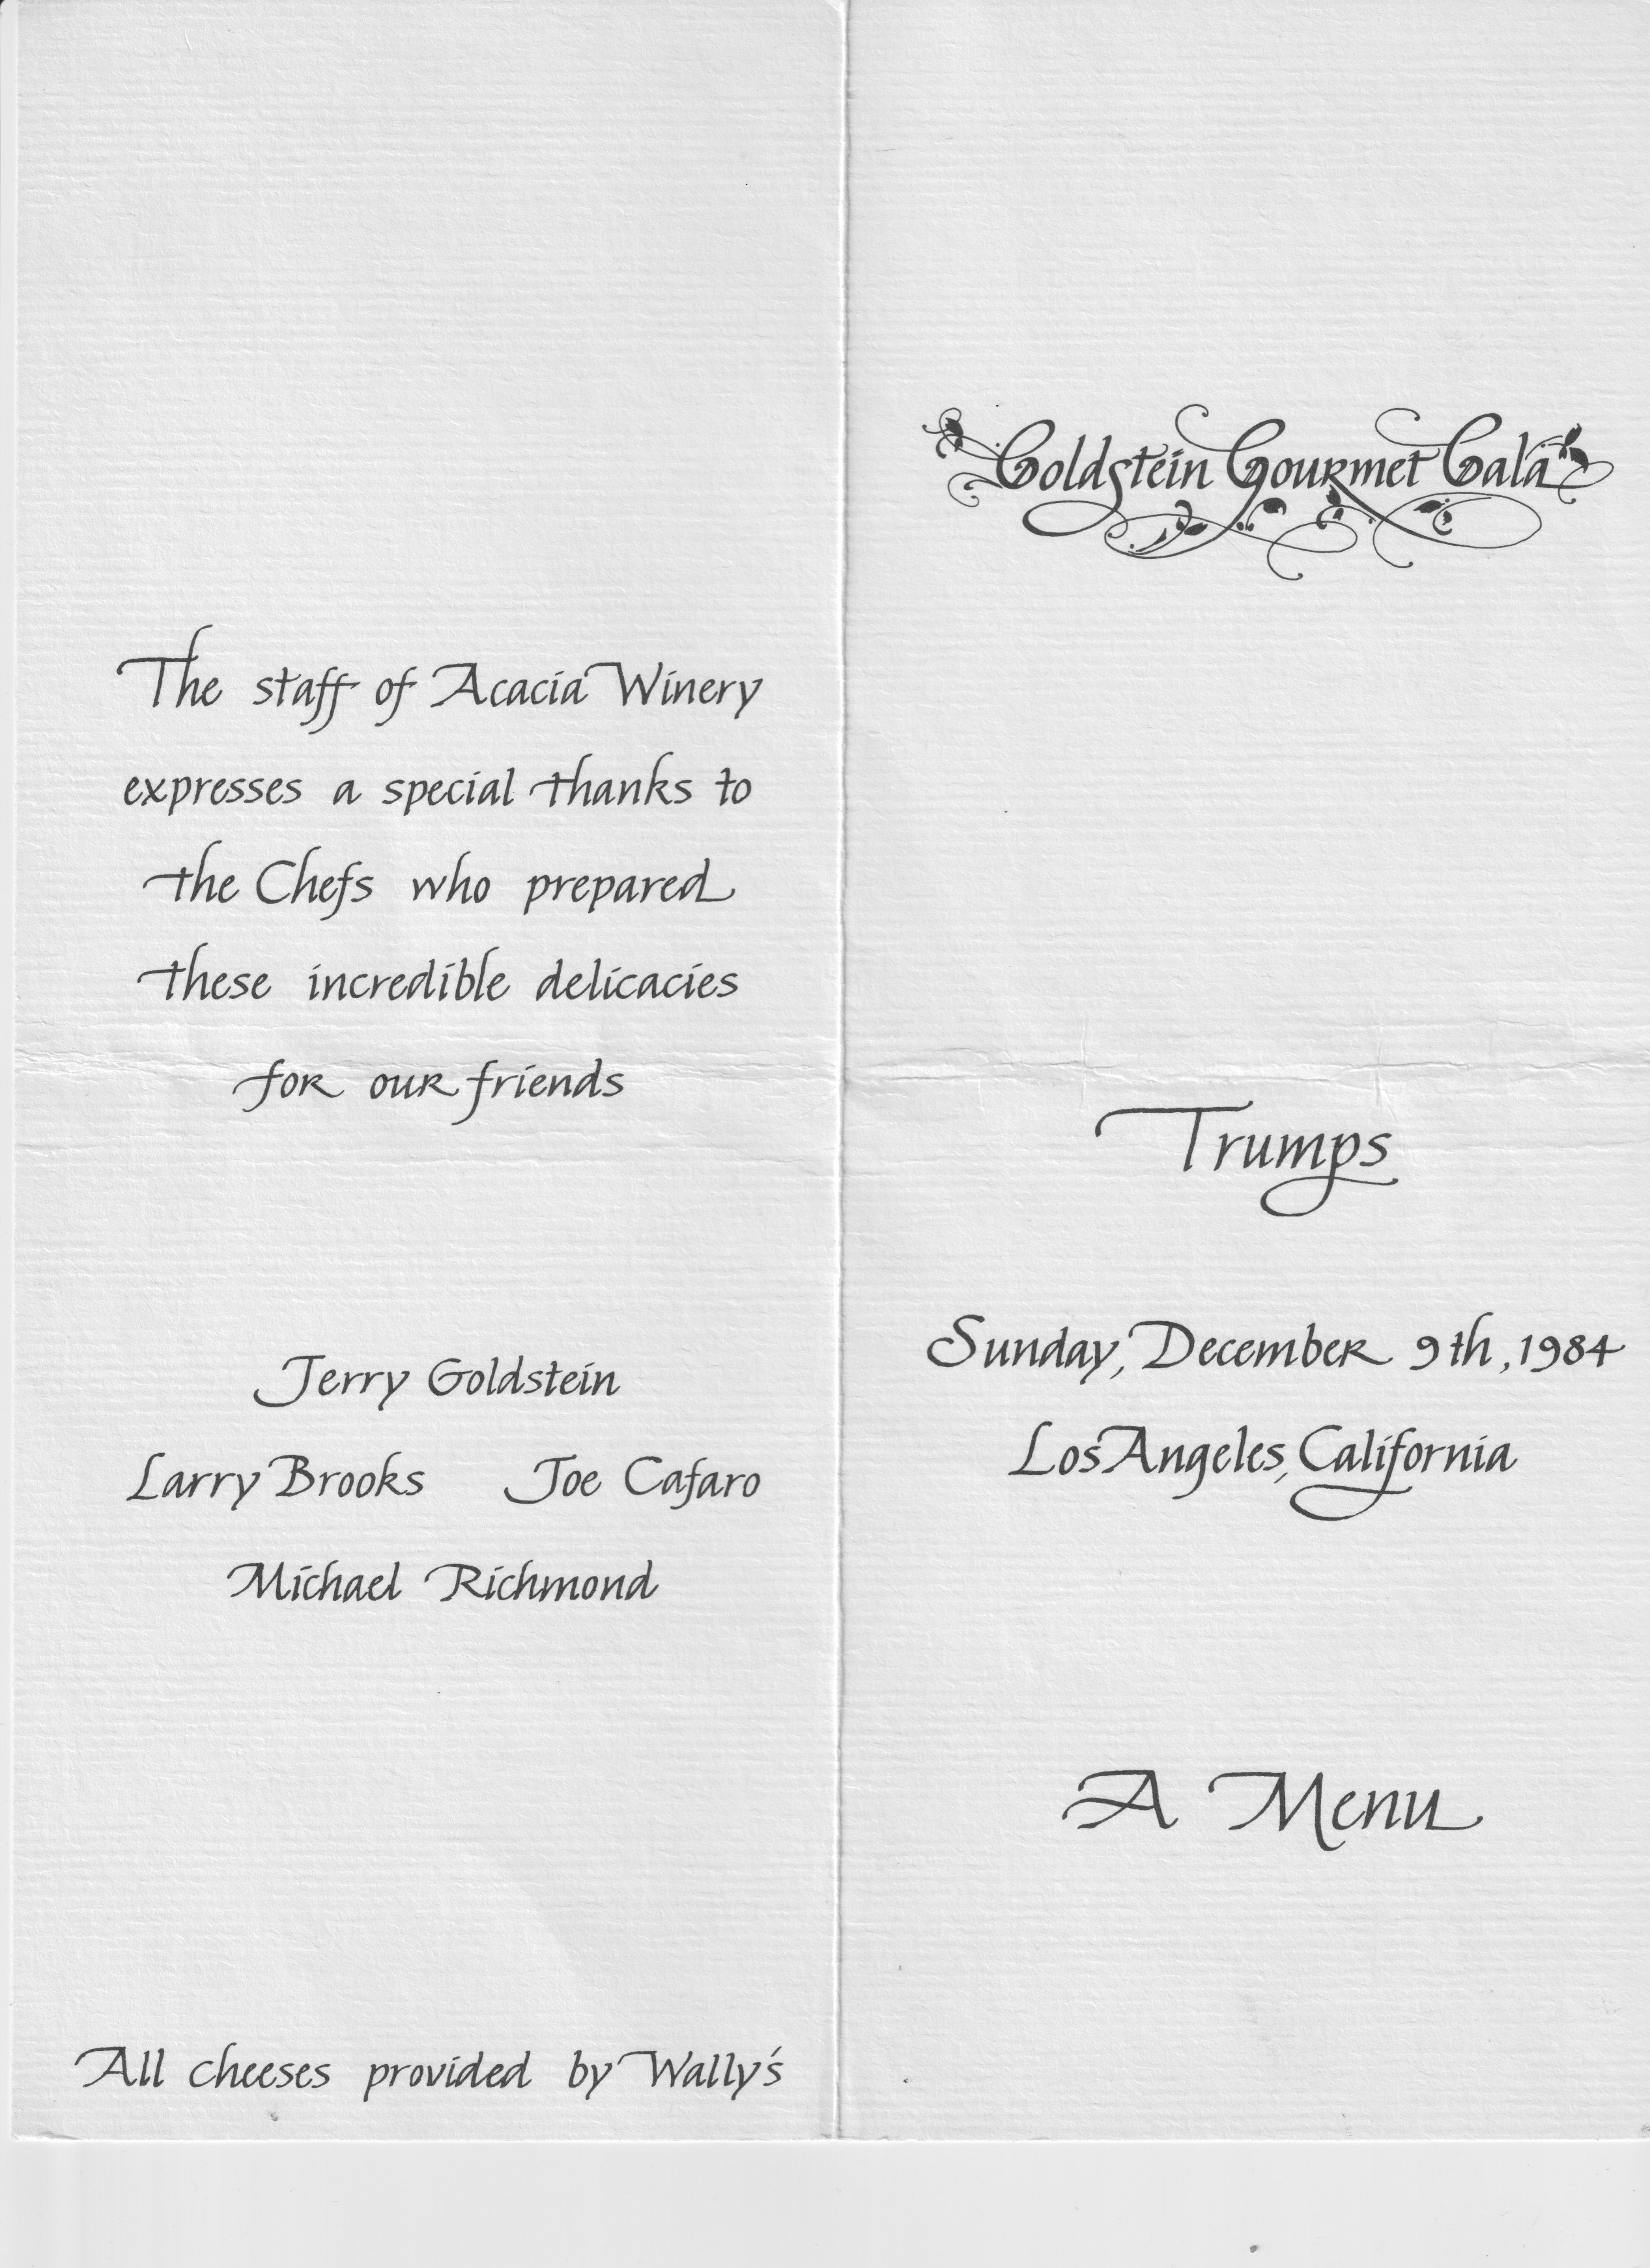 The staff of Acacia Winery
expresses a special thanks to
the Chefs who prepared
these incredible delicacies
for our friends
Jerry Goldstein
Larry Brooks Joe Cafaro
Michael Richmond
All cheeses provided by Wally's
Goldstein Gourmet Gala
Trumps
Sunday, December 9th, 1984
Los Angeles, California
A Menu